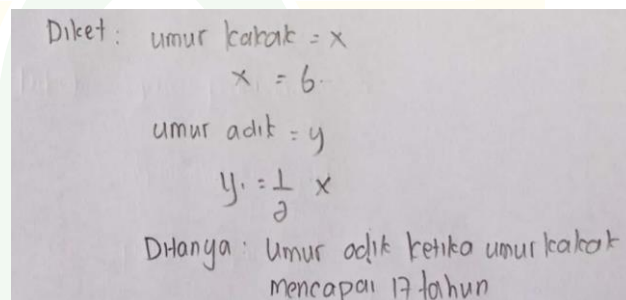 Diket : umur kakak = x
x = 6
umur adik = y
y = 1/2 x
Ditanya : Umur adik ketika umur kakak
mencapai 17 tahun